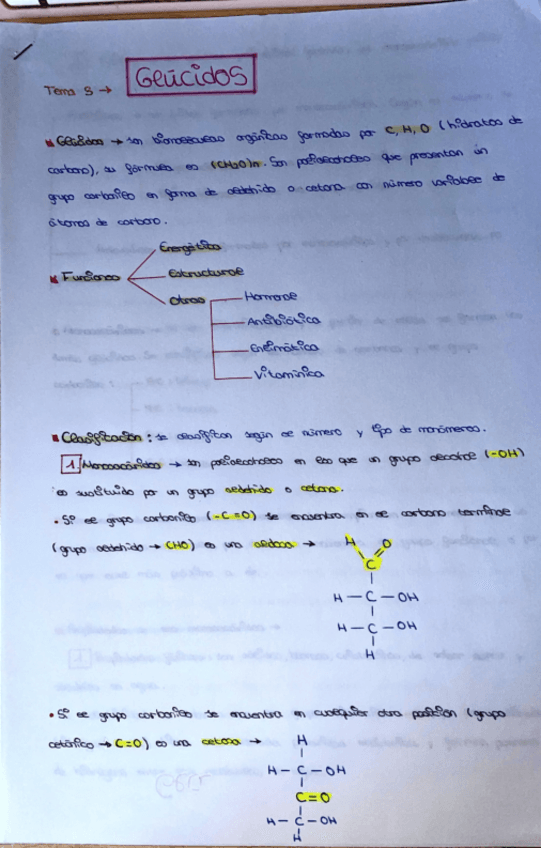 Tema 8 → Glúcidos
Glúcidos → son biomoléculas orgánicas formadas por C, H, O (hidratos de
carbono), su fórmula es (CH₂O)n. Son polialcoholes que presentan un
grupo carbonilo en forma de aldehído o cetona con número variable de
átomos de carbono.
Energética
Funciones
Estructural
Otras
Hormonal
Antibiótica
Enzimática
Vitamínica
Clasificación: se clasifican según el número y tipo de monómeros.
1. Monosacáridos → son polialcoholes en los que un grupo alcohol (-OH)
es sustituido por un grupo aldehído o cetona.
• Si el grupo carbonilo (-C=O) se encuentra en el carbono terminal
(grupo aldehído → CHO) es una aldosa →
H O
C
H-C-OH
H-C-OH
H
• Si el grupo carbonilo se encuentra en cualquier otra posición (grupo
cetónico → C=O) es una cetosa →
H
H-C-OH
C=O
H-C-OH
H